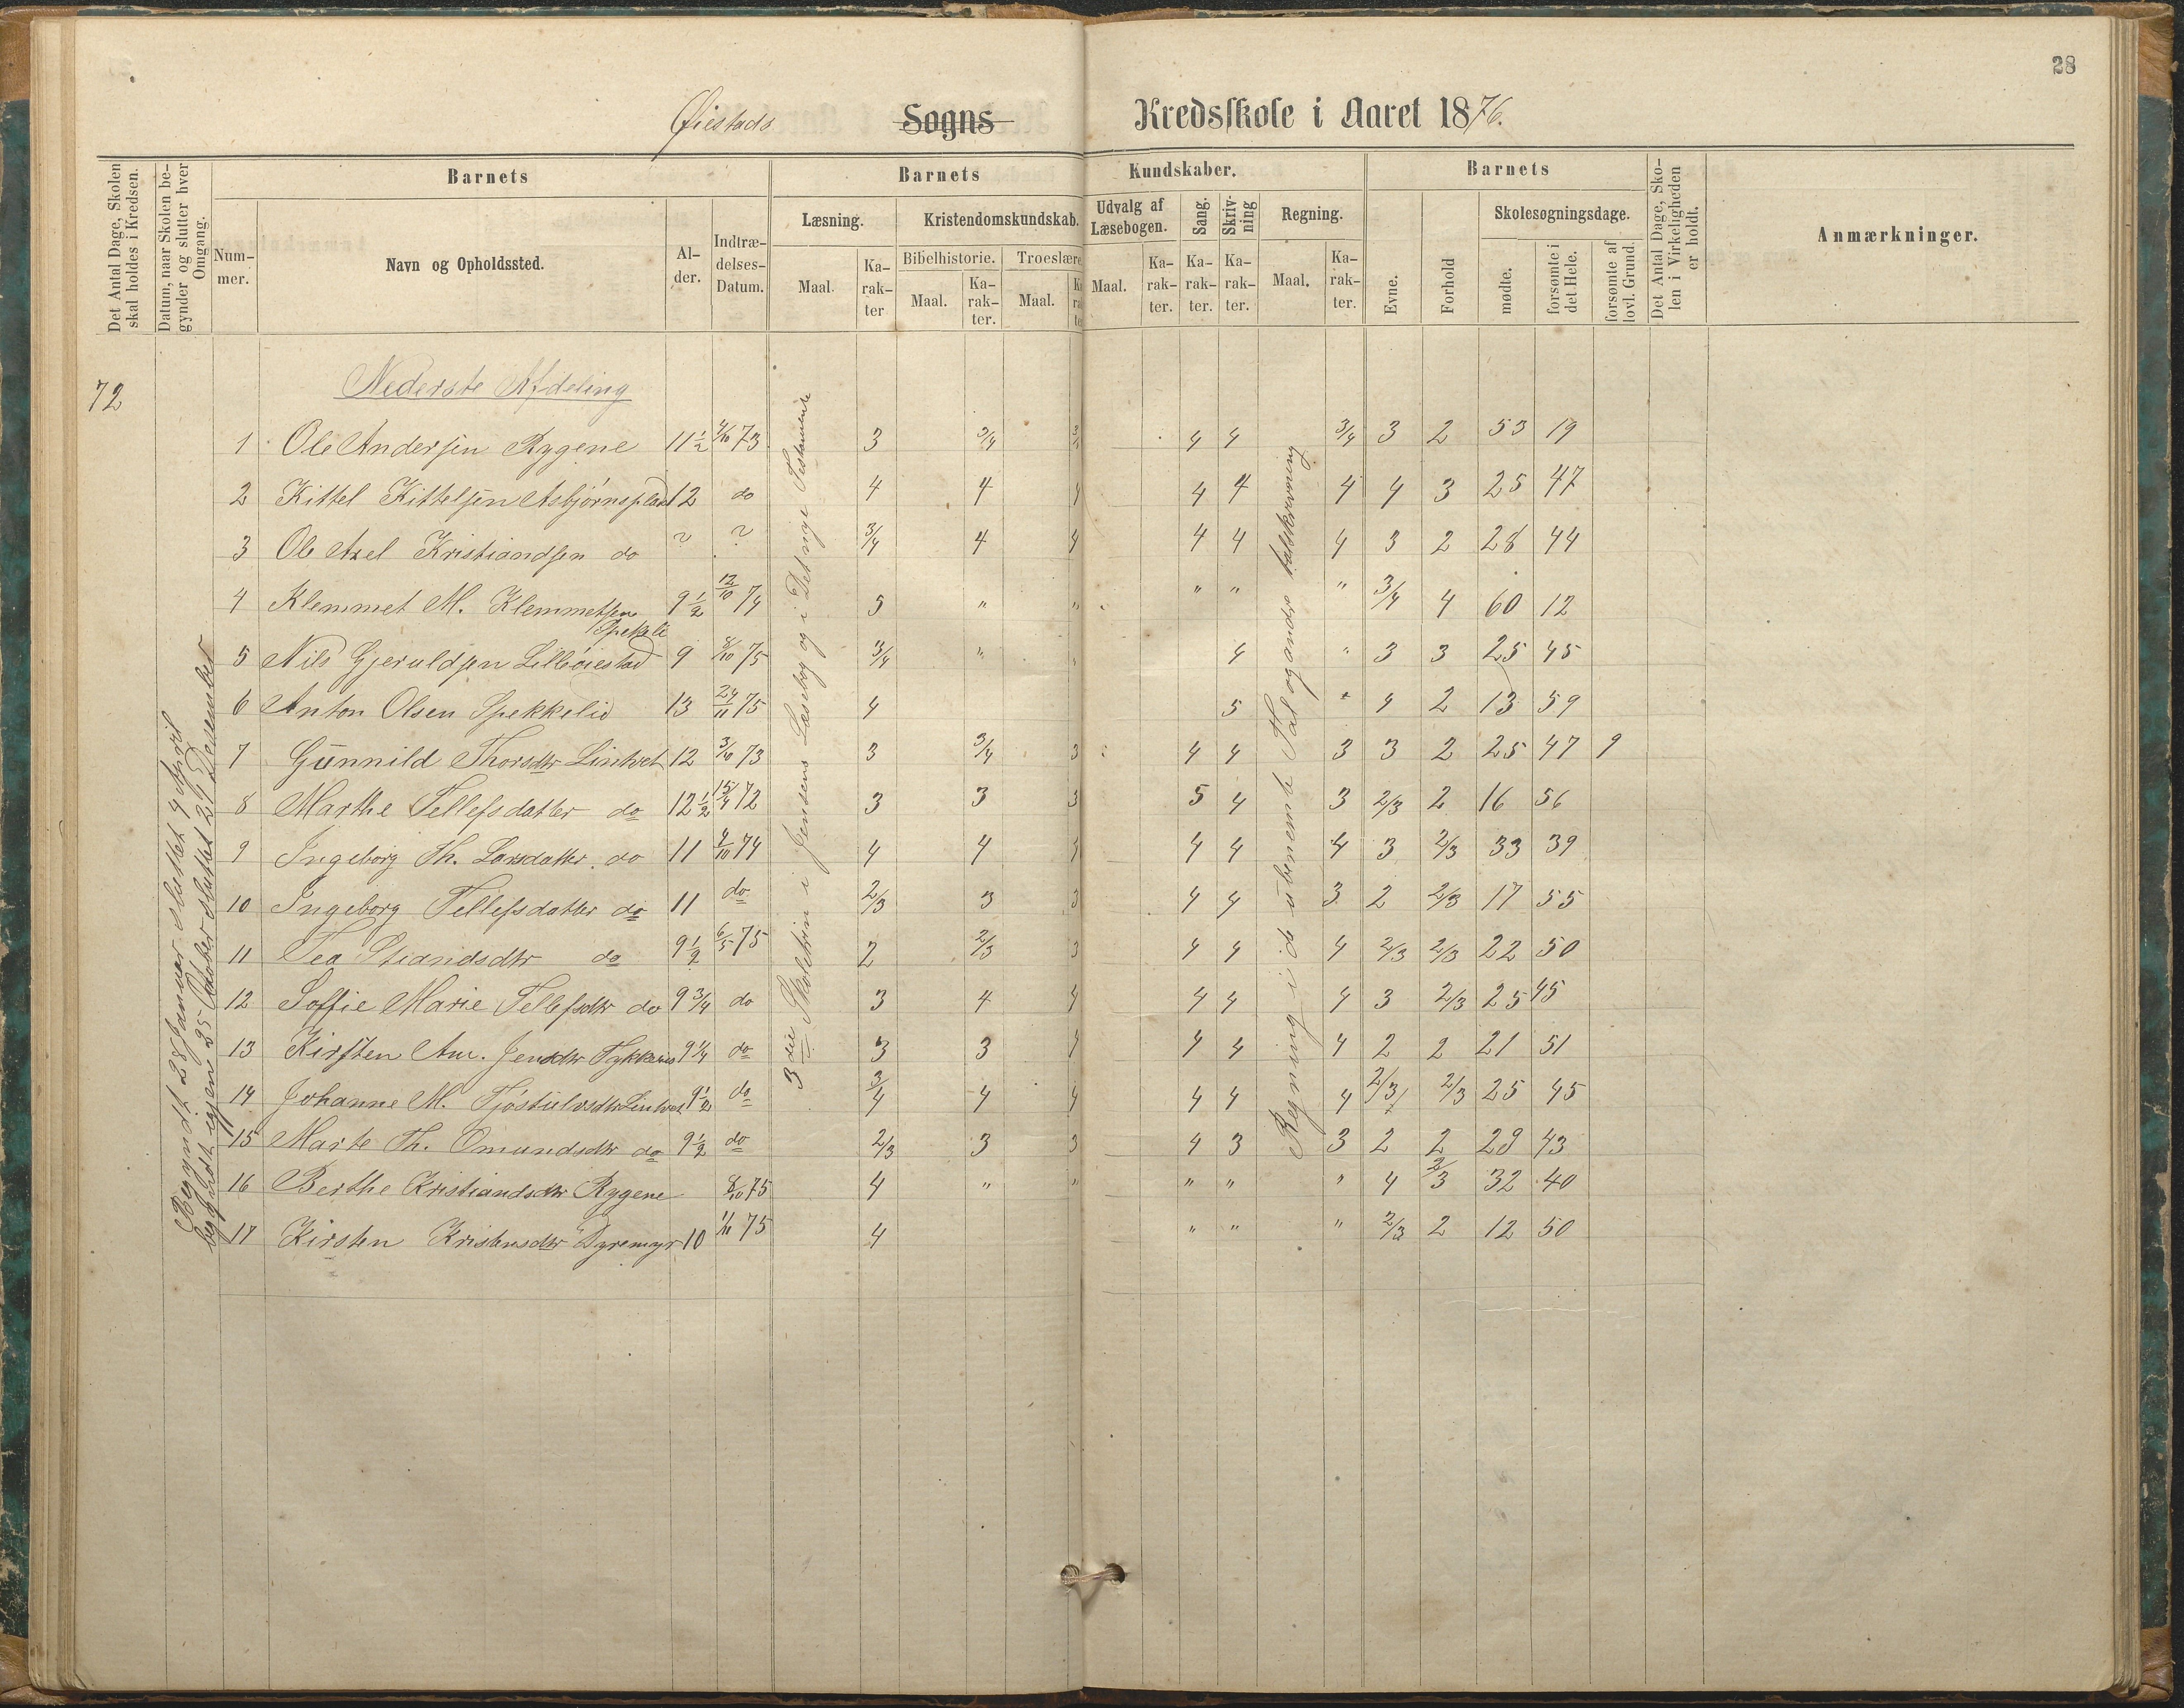 28
Øiestads Sogns Kredsskole i Aaret 1876.
Det Antal Dage, Skolen skal holdes i Kredsen.
Datum, naar Skolen begynder og slutter hver Omgang.
Barnets
Nummer.
Navn og Opholdssted.
Alder.
Indtrædelses-Datum.
Barnets Kundskaber.
Læsning.
Maal.
Karakter
Kristendomskundskab.
Bibelhistorie.
Maal.
Karakter.
Troeslære
Maal.
Udvalg af Læsebogen.
Maal.
Karakter.
Sang.
Karakter.
Skrivning
Karakter.
Regning.
Maal.
Karakter.
Barnets
Evne.
Forhold
Skolesøgningsdage.
mødte.
forsømte i det Hele.
forsømte af lovl. Grund.
Det Antal Dage, Skolen i Virkeligheden er holdt.
Anmærkninger.
72
Nederste Afdeling
Begyndt 28 Januar sluttet 4 April
begyndt igjen 25 Oktober sluttet 21 Desember
3die Skoletrin i Jensens Læsebog og i Det nye Testamente
Regning i d ubenevnte Tal og andre talskrivning
1 Ole Andersen Rygene 11½ 4/10 73 3 3/4 3/4 4 4 3/4 3 2 53 19
2 Kittel Kittelsen Asbjørnsplads 12 do 4 4 4 4 4 4 4 3 25 47
3 Ole Axel Kristiandsen do ? ? 3/4 4 4 4 4 4 3 2 28 44
4 Klemmet M. Klemmetsen Spekeli 9½ 12/10 74 5 " " " " " 3/4 4 60 12
5 Nils Gjeruldsen Lilleøiestad 9 8/10 75 3/4 " " 4 " 3 3 25 45
6 Anton Olsen Spekkelid 13 24/11 75 4 5 " 4 2 13 59
7 Gunnild Thorsdtr Lintvet 12 3/10 73 3 3/4 3 4 4 3 3 2 25 47 9
8 Marthe Tellefsdatter do 12½ 15/4 72 3 3 3 5 4 3 2/3 2 16 56
9 Ingeborg Th. Larsdatter do 11 9/10 74 4 4 4 4 4 4 3 2/3 33 39
10 Ingeborg Tellefsdatter do 11 do 2/3 3 3 4 4 3 2 2/3 17 55
11 Tea Stiandsdtr do 9½ 6/5 75 2 2/3 3 4 4 4 2/3 2/3 22 50
12 Soffie Marie Tellefsdtr do 9¾ do 3 4 4 4 4 4 3 2/3 25 45
13 Kirsten An. Jensdtr 9¼ do 3 3 4 4 4 4 2 2 21 51
14 Johanne M. Tjøstulvsdtr Lintvet 9½ do 3/4 4 4 4 4 4 2/3 2/3 25 45
15 Marte Th. Omundsdtr do 9½ do 2/3 3 3 4 3 3 2 2 29 43
16 Berthe Kristiandsdtr Rygene 8/10 75 4 " " " " " 4 2/3 32 40
17 Kirsten Kristensdtr Dyremyr 10 11/11 75 4 " " " 2/3 2 12 50